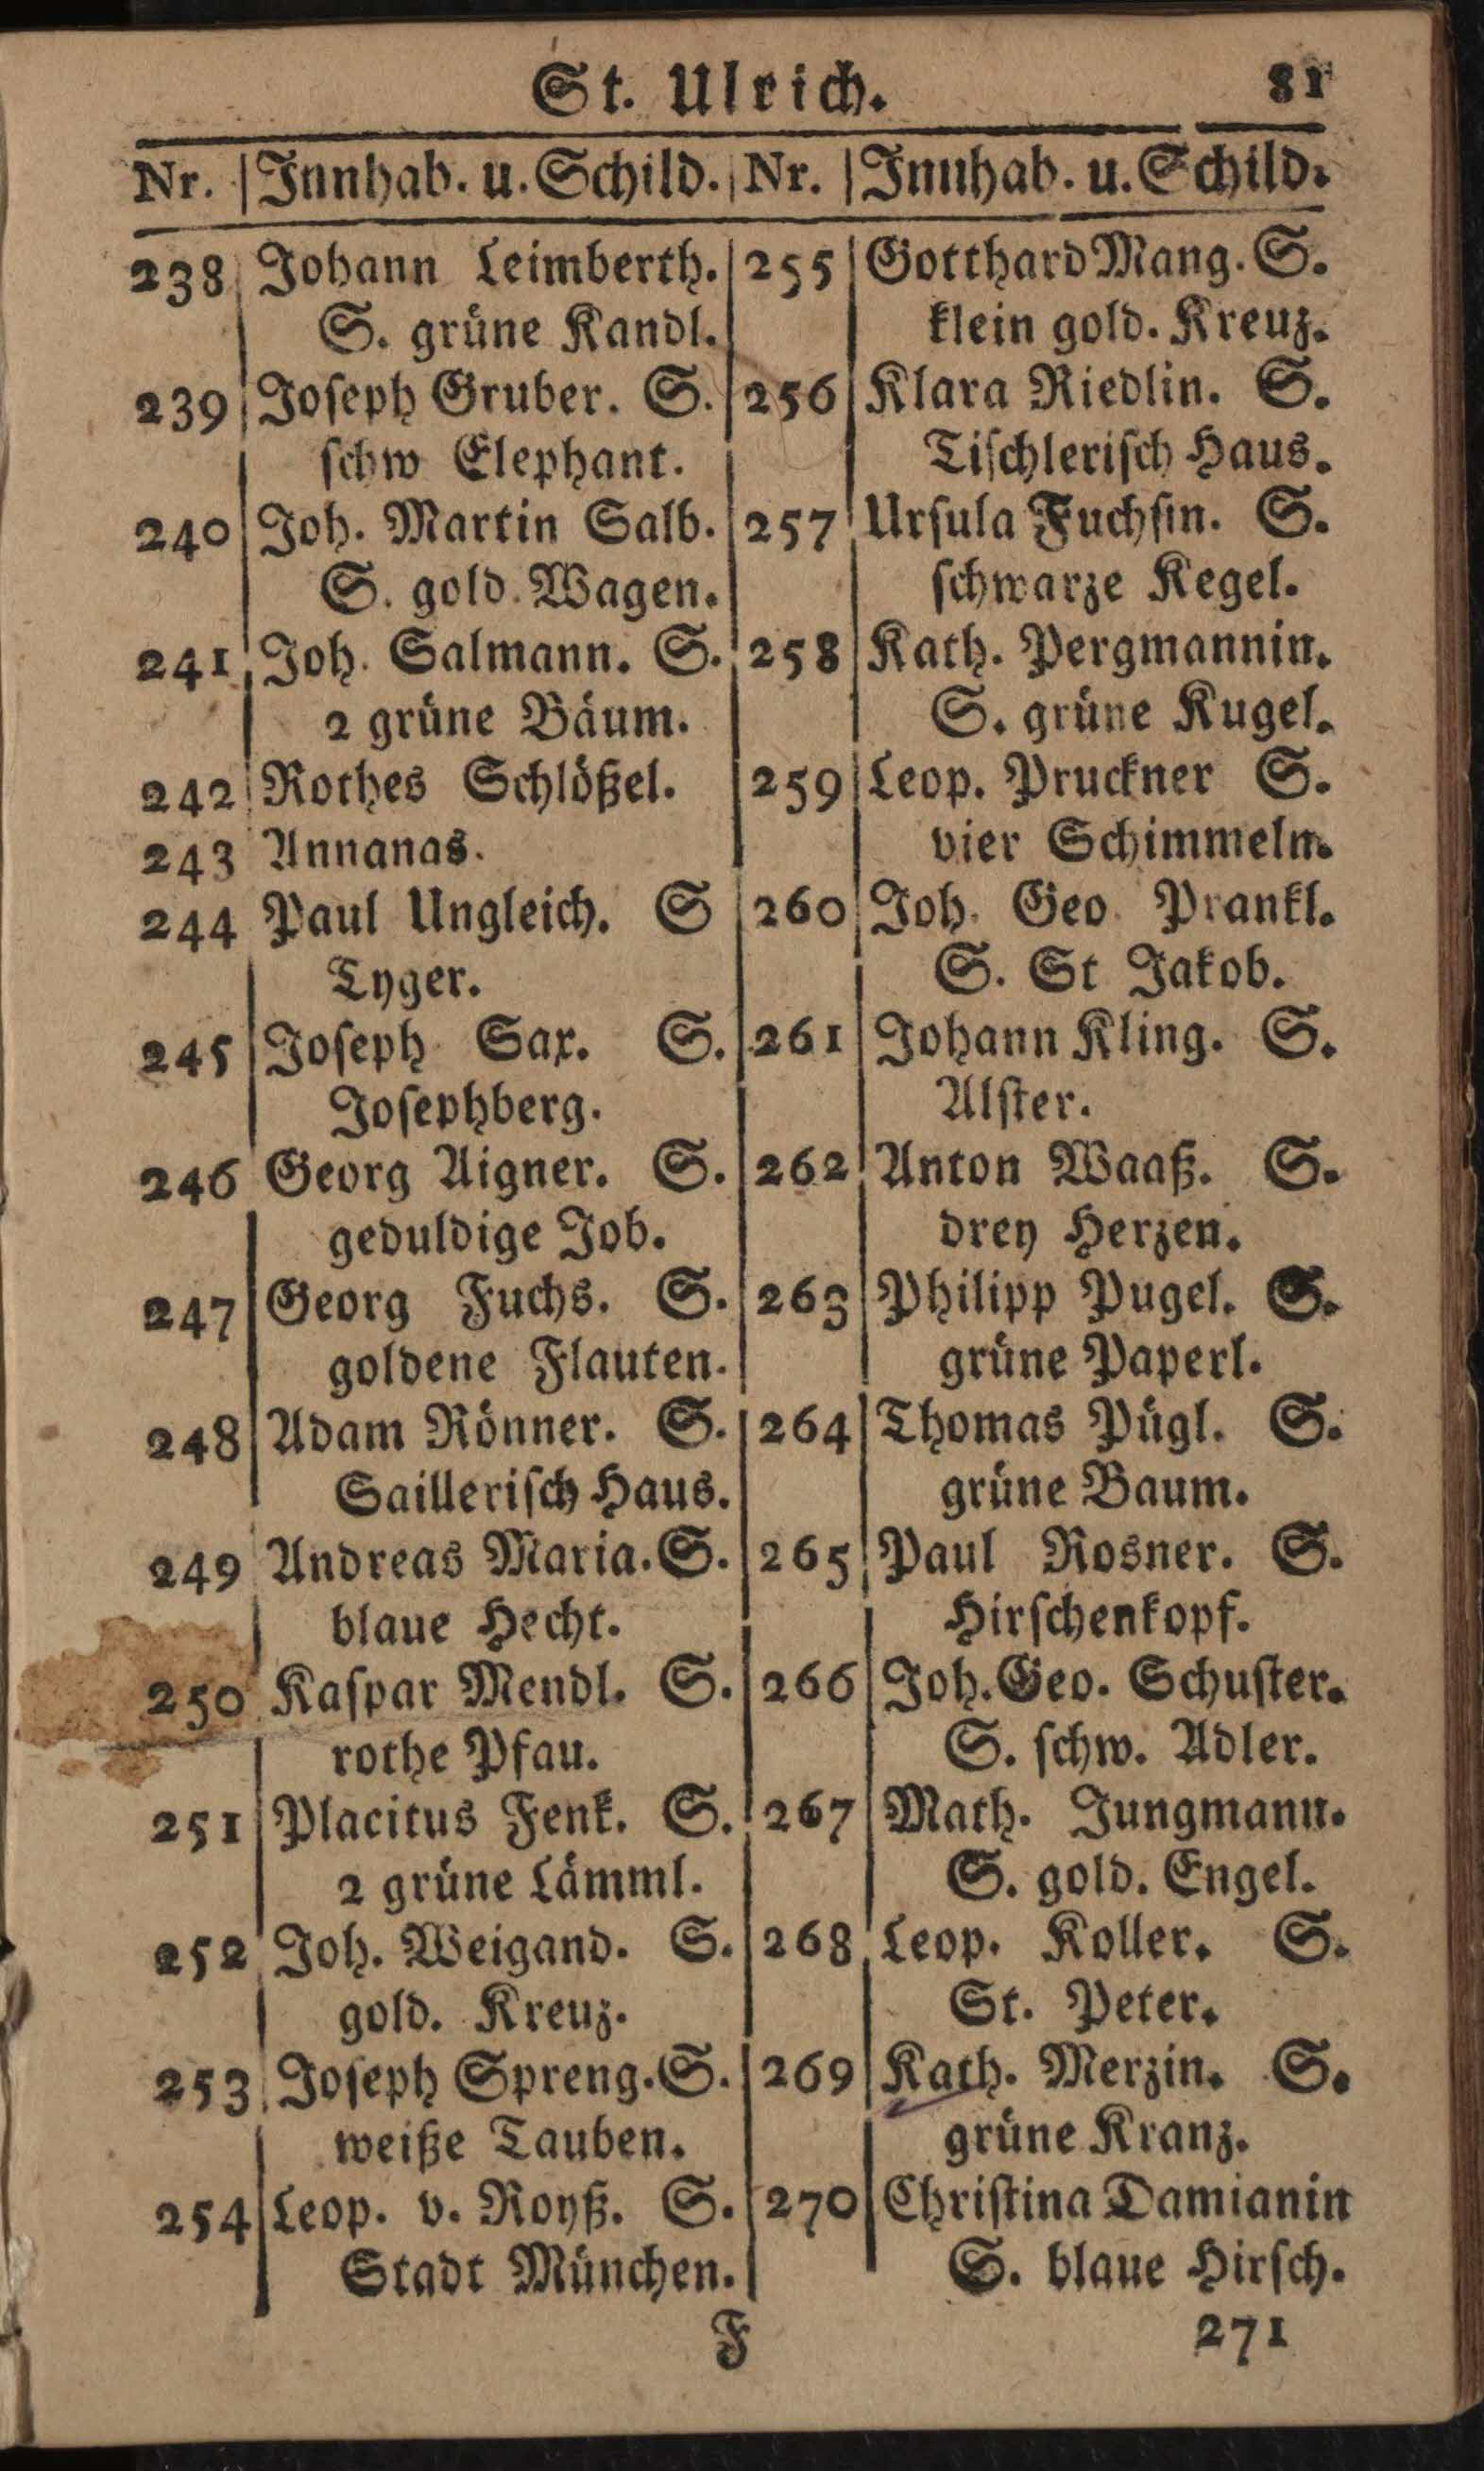 St. Ulrich. 81
Nr. Innhab. u. Schild.
238 Johann Leimberth.
S. grüne Kandl.
239 Joseph Gruber. S.
schw Elephant.
240 Joh. Martin Salb.
S. gold. Wagen.
241 Joh. Salmann. S.
2 grüne Bäum.
242 Rothes Schlößel.
243 Annanas.
244 Paul Ungleich. S
Tyger.
245 Joseph Sax. S.
Josephberg.
246 Georg Aigner. S.
geduldige Job.
247 Georg Fuchs. S.
goldene Flauten.
248 Adam Rönner. S.
Saillerisch Haus.
249 Andreas Maria. S.
blaue Hecht.
250 Kaspar Mendl. S.
rothe Pfau.
251 Placitus Fenk. S.
2 grüne Lämml.
252 Joh. Weigand. S.
gold. Kreuz.
253 Joseph Spreng. S.
weiße Tauben.
254 Leop. v. Royß. S.
Stadt München.
Nr. Innhab. u. Schild.
255 Gotthard Mang. S.
klein gold. Kreuz.
256 Klara Riedlin. S.
Tischlerisch Haus.
257 Ursula Fuchsin. S.
schwarze Kegel.
258 Kath. Pergmannin.
S. grüne Kugel.
259 Leop. Pruckner S.
vier Schimmeln.
260 Joh. Geo. Prankl.
S. St Jakob.
261 Johann Kling. S.
Alster.
262 Anton Waaß. S.
drey Herzen.
263 Philipp Pugel. S.
grüne Paperl.
264 Thomas Pügl. S.
grüne Baum.
265 Paul Rosner. S.
Hirschenkopf.
266 Joh. Geo. Schuster.
S. schw. Adler.
267 Math. Jungmann.
S. gold. Engel.
268 Leop. Koller. S.
St. Peter.
269 Kath. Merzin. S.
grüne Kranz.
270 Christina Damianin
S. blaue Hirsch.
F 271